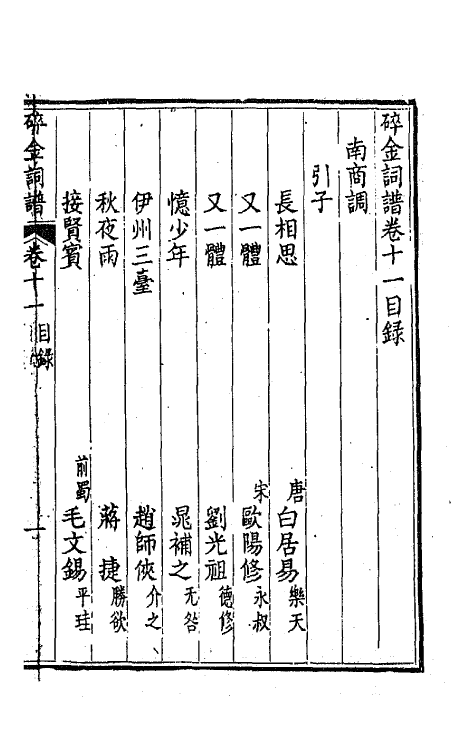 碎金詞譜卷十一目録
南商調
引子
長相思 唐白居易樂天
又一體 宋歐陽修永叔
又一體 劉光祖德修
憶少年 晁補之无咎
伊州三臺 趙師俠介之
秋夜雨 蔣捷勝欲
接賢賓 前蜀毛文錫平珪
碎金詞譜 卷十一 目録 一